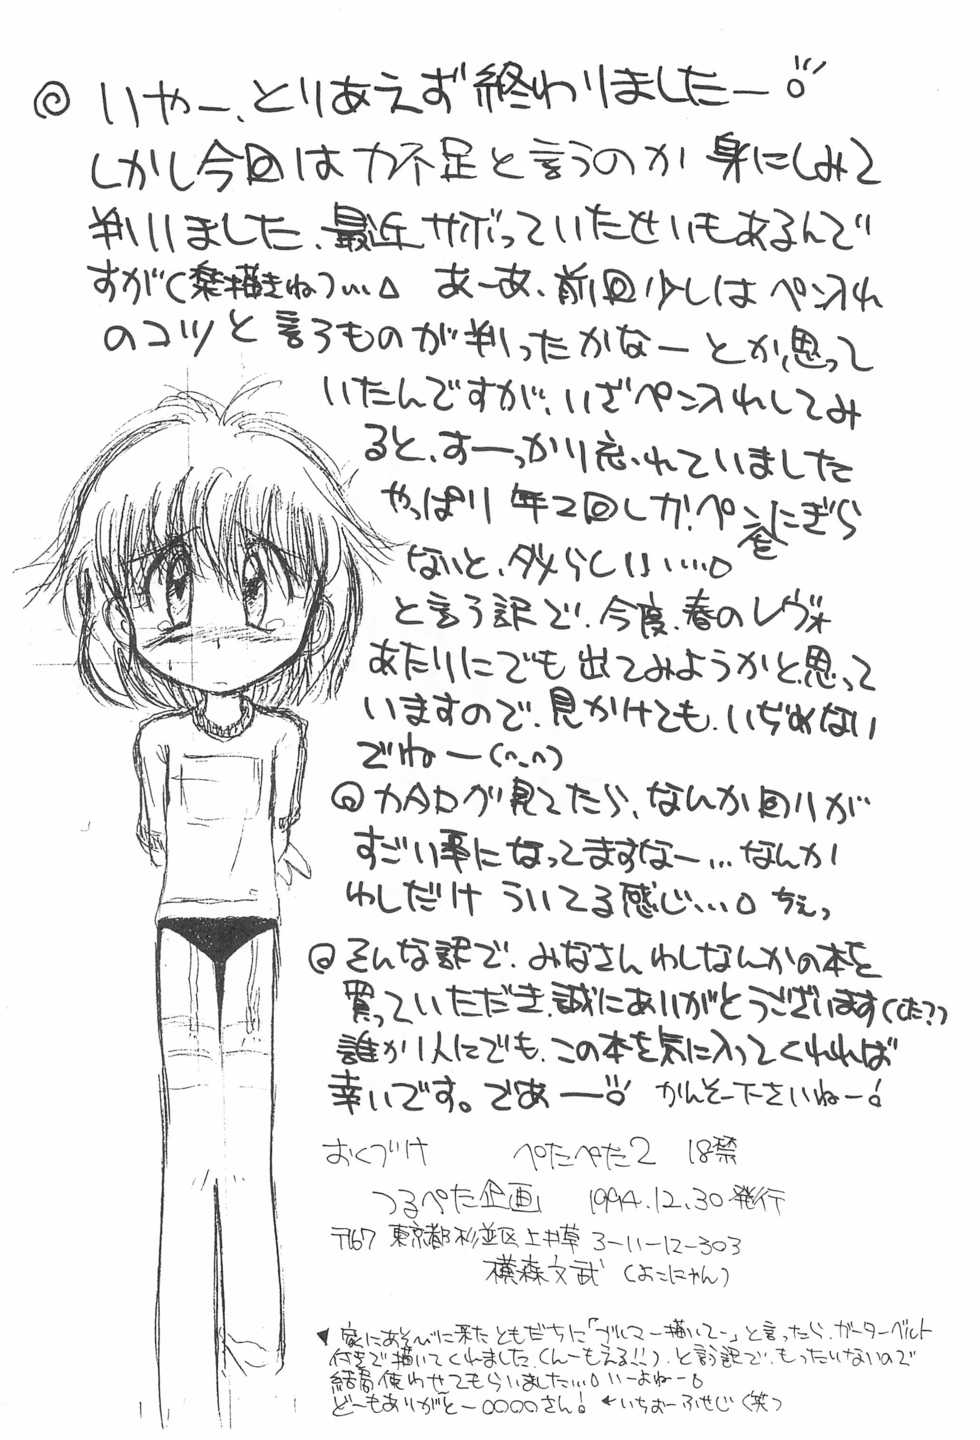 ◎ いやー、とりあえず終わりましたー
しかし今回は力不足と言うのが身にしみて
判りました、最近サボっていたせいもあるんで
すがく(楽描きね)… あーあ、前回少しはペン入れ
のコツと言うものが判ったかなーとか思って
いたんですが、いざペン入れしてみ
ると、すーっかり忘れていました
やっぱり年2回しかペンにぎら
ないと、ダメらしい…。
と言う訳で、今度、春のレヴォ
あたりにでも出てみようかと思って
いますので、見かけても、いぢめない
でねー(^_^)
◎ カタログ見てたら、なんか回りが
すごい事になってますなー…なんか
わしだけういてる感じ…。ちぇっ
◎ そんな訳で、みなさんわしなんかの本を
買っていただき、誠にありがとうございます(した?)
誰か1人にでも、この本を気に入ってくれれば
幸いです。であー かんそー下さいねー!
おくづけ ぺたぺた2 18禁
つるぺた企画 1994.12.30発行
〒167 東京都杉並区上井草 3-11-12-303
横森文武 (よこにゃん)
▼ 家にあそびに来たともだちに「ブルマー描いてー」と言ったら、ガーターベルト
付きで描いてくれました。(んーもえる!!)、と言う訳で、もったいないので
結局使わせてもらいました…。いーよねー。
どーもありがとー○○○○さん! ←いちおーふせじ(笑)